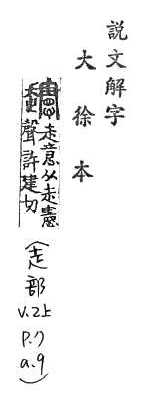 説文解字
大徐本
走意从走憲
聲許建切
(走部
V.2上
P.7
a.9)